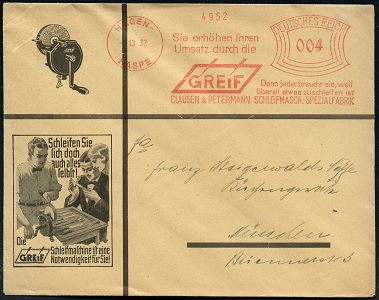 4952
HAGEN-
HASPE
10 32
DEUTSCHES REICH
004
Sie erhöhen Ihren
Umsatz durch die
GREIF
Denn jeder braucht sie, weil
überall etwas zuschleifen ist
CLAUSEN & PETERMANN SCHLEIFMASCH.-SPEZIALFABRIK
Schleifen Sie
sich doch
auch alles
selbst!
Die
GREIF Schleifmaschine ist eine
Notwendigkeit für Sie!
Fa
Franz
München